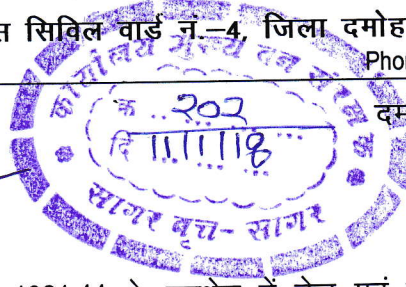 स सिविल वार्ड नं.–4, जिला दमोह
Phon
दम
कार्यालय मुख्य वन संरक्षक
क्र ..202
दि 11/1/18
सागर वृत्त - सागर